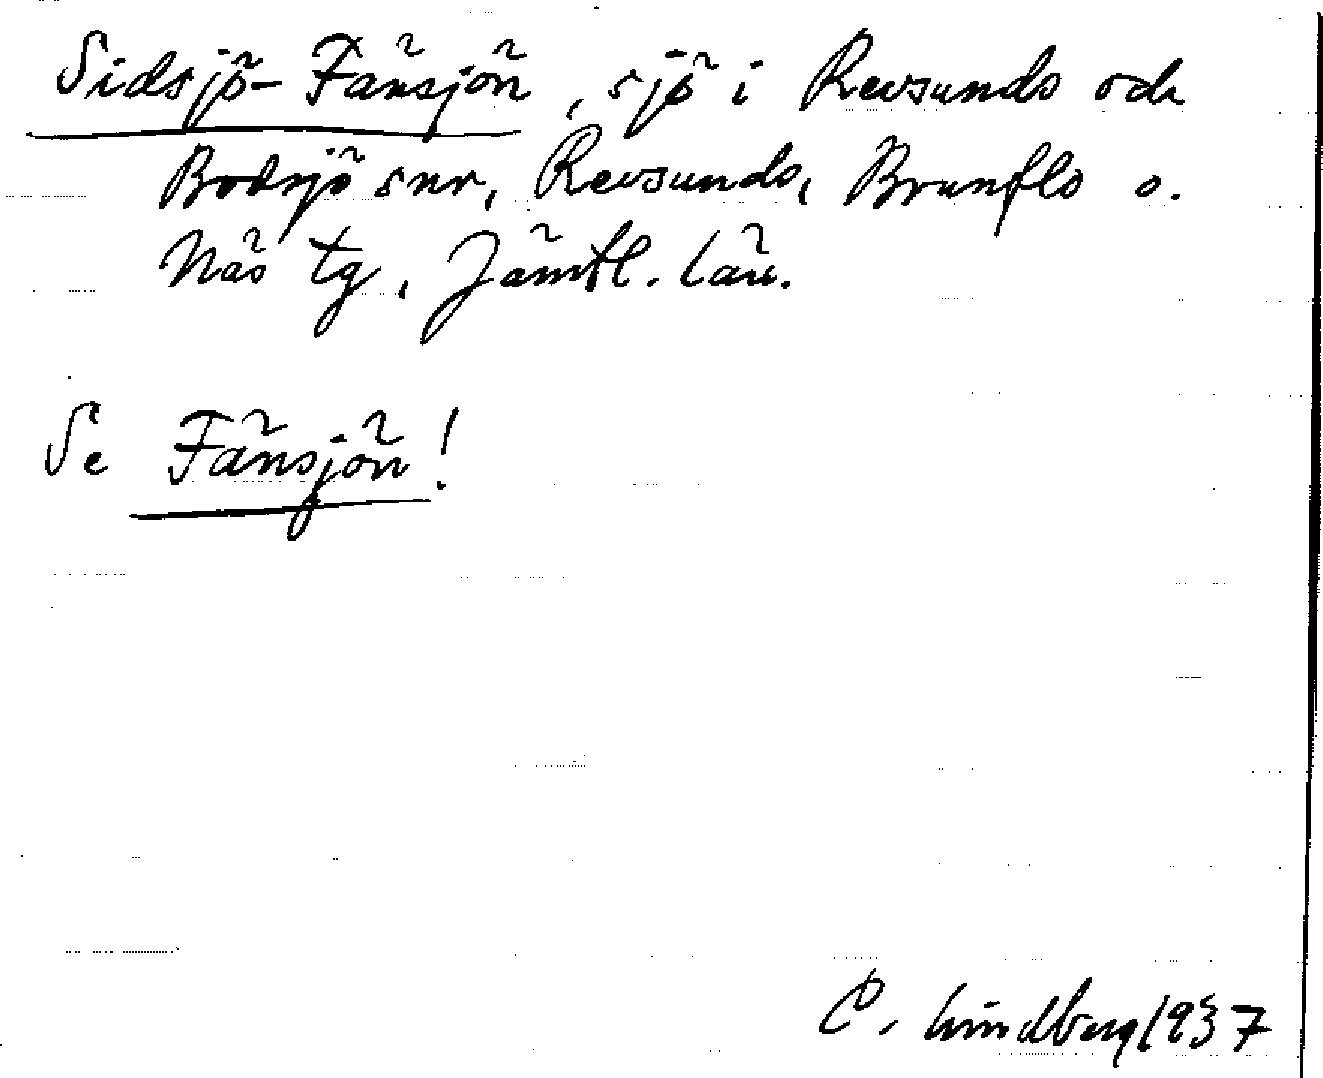 Sidsjö-Fänsjön, sjö i Revsunds och
Bodsjö snr, Revsunds, Brunflo o.
Näs tg, Jämtl. län.
Se Fänsjön!
C. Lindberg 1937